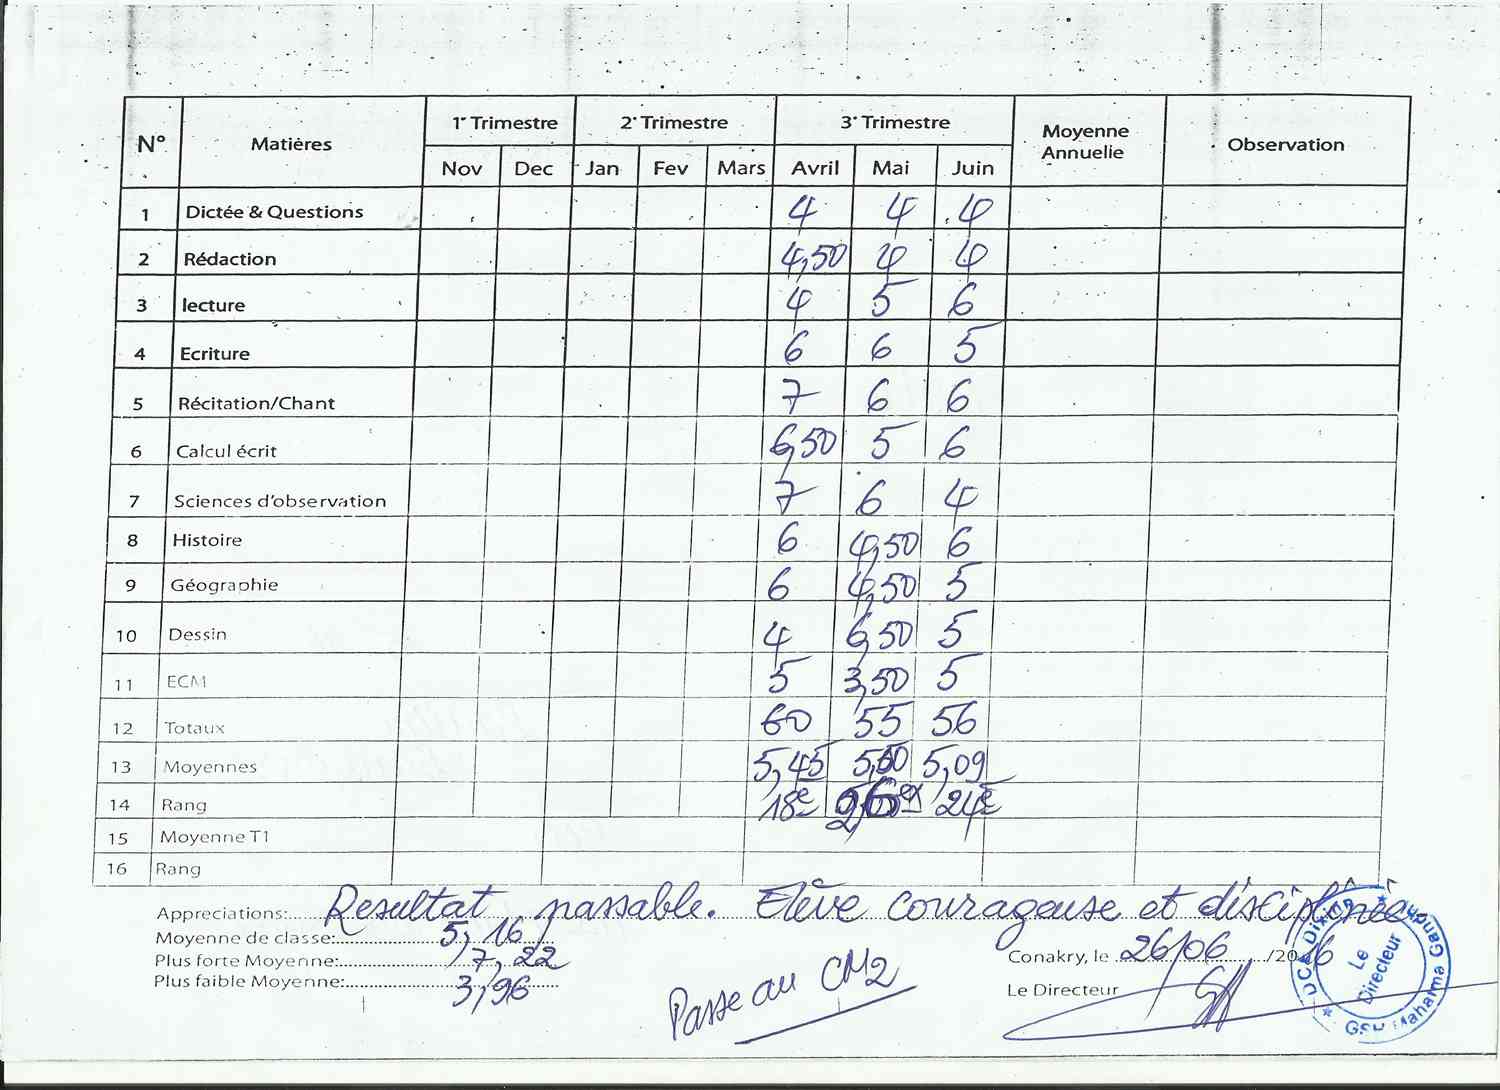 N° Matières 1e Trimestre 2e Trimestre 3e Trimestre Moyenne Annuelie Observation
Nov Dec Jan Fev Mars Avril Mai Juin
1 Dictée & Questions 4 4 4
2 Rédaction 4,50 4 4
3 lecture 4 5 6
4 Ecriture 6 6 5
5 Récitation/Chant 7 6 6
6 Calcul écrit 6,50 5 6
7 Sciences d'observation 7 6 4
8 Histoire 6 4,50 6
9 Géographie 6 4,50 5
10 Dessin 4 6,50 5
11 ECM 5 3,50 5
12 Totaux 60 55 56
13 Moyennes 5,45 5,00 5,09
14 Rang 18e 24e
15 Moyenne T1
16 Rang
Appreciations: Resultat passable. Elève courageuse et disciplinée.
Moyenne de classe: 5,16
Plus forte Moyenne: 7,22
Plus faible Moyenne: 3,96
Passe au CM2
Conakry, le 26/06 /2016
Le Directeur
UCE Dixinn
Le Directeur
Mahatma Gandhi